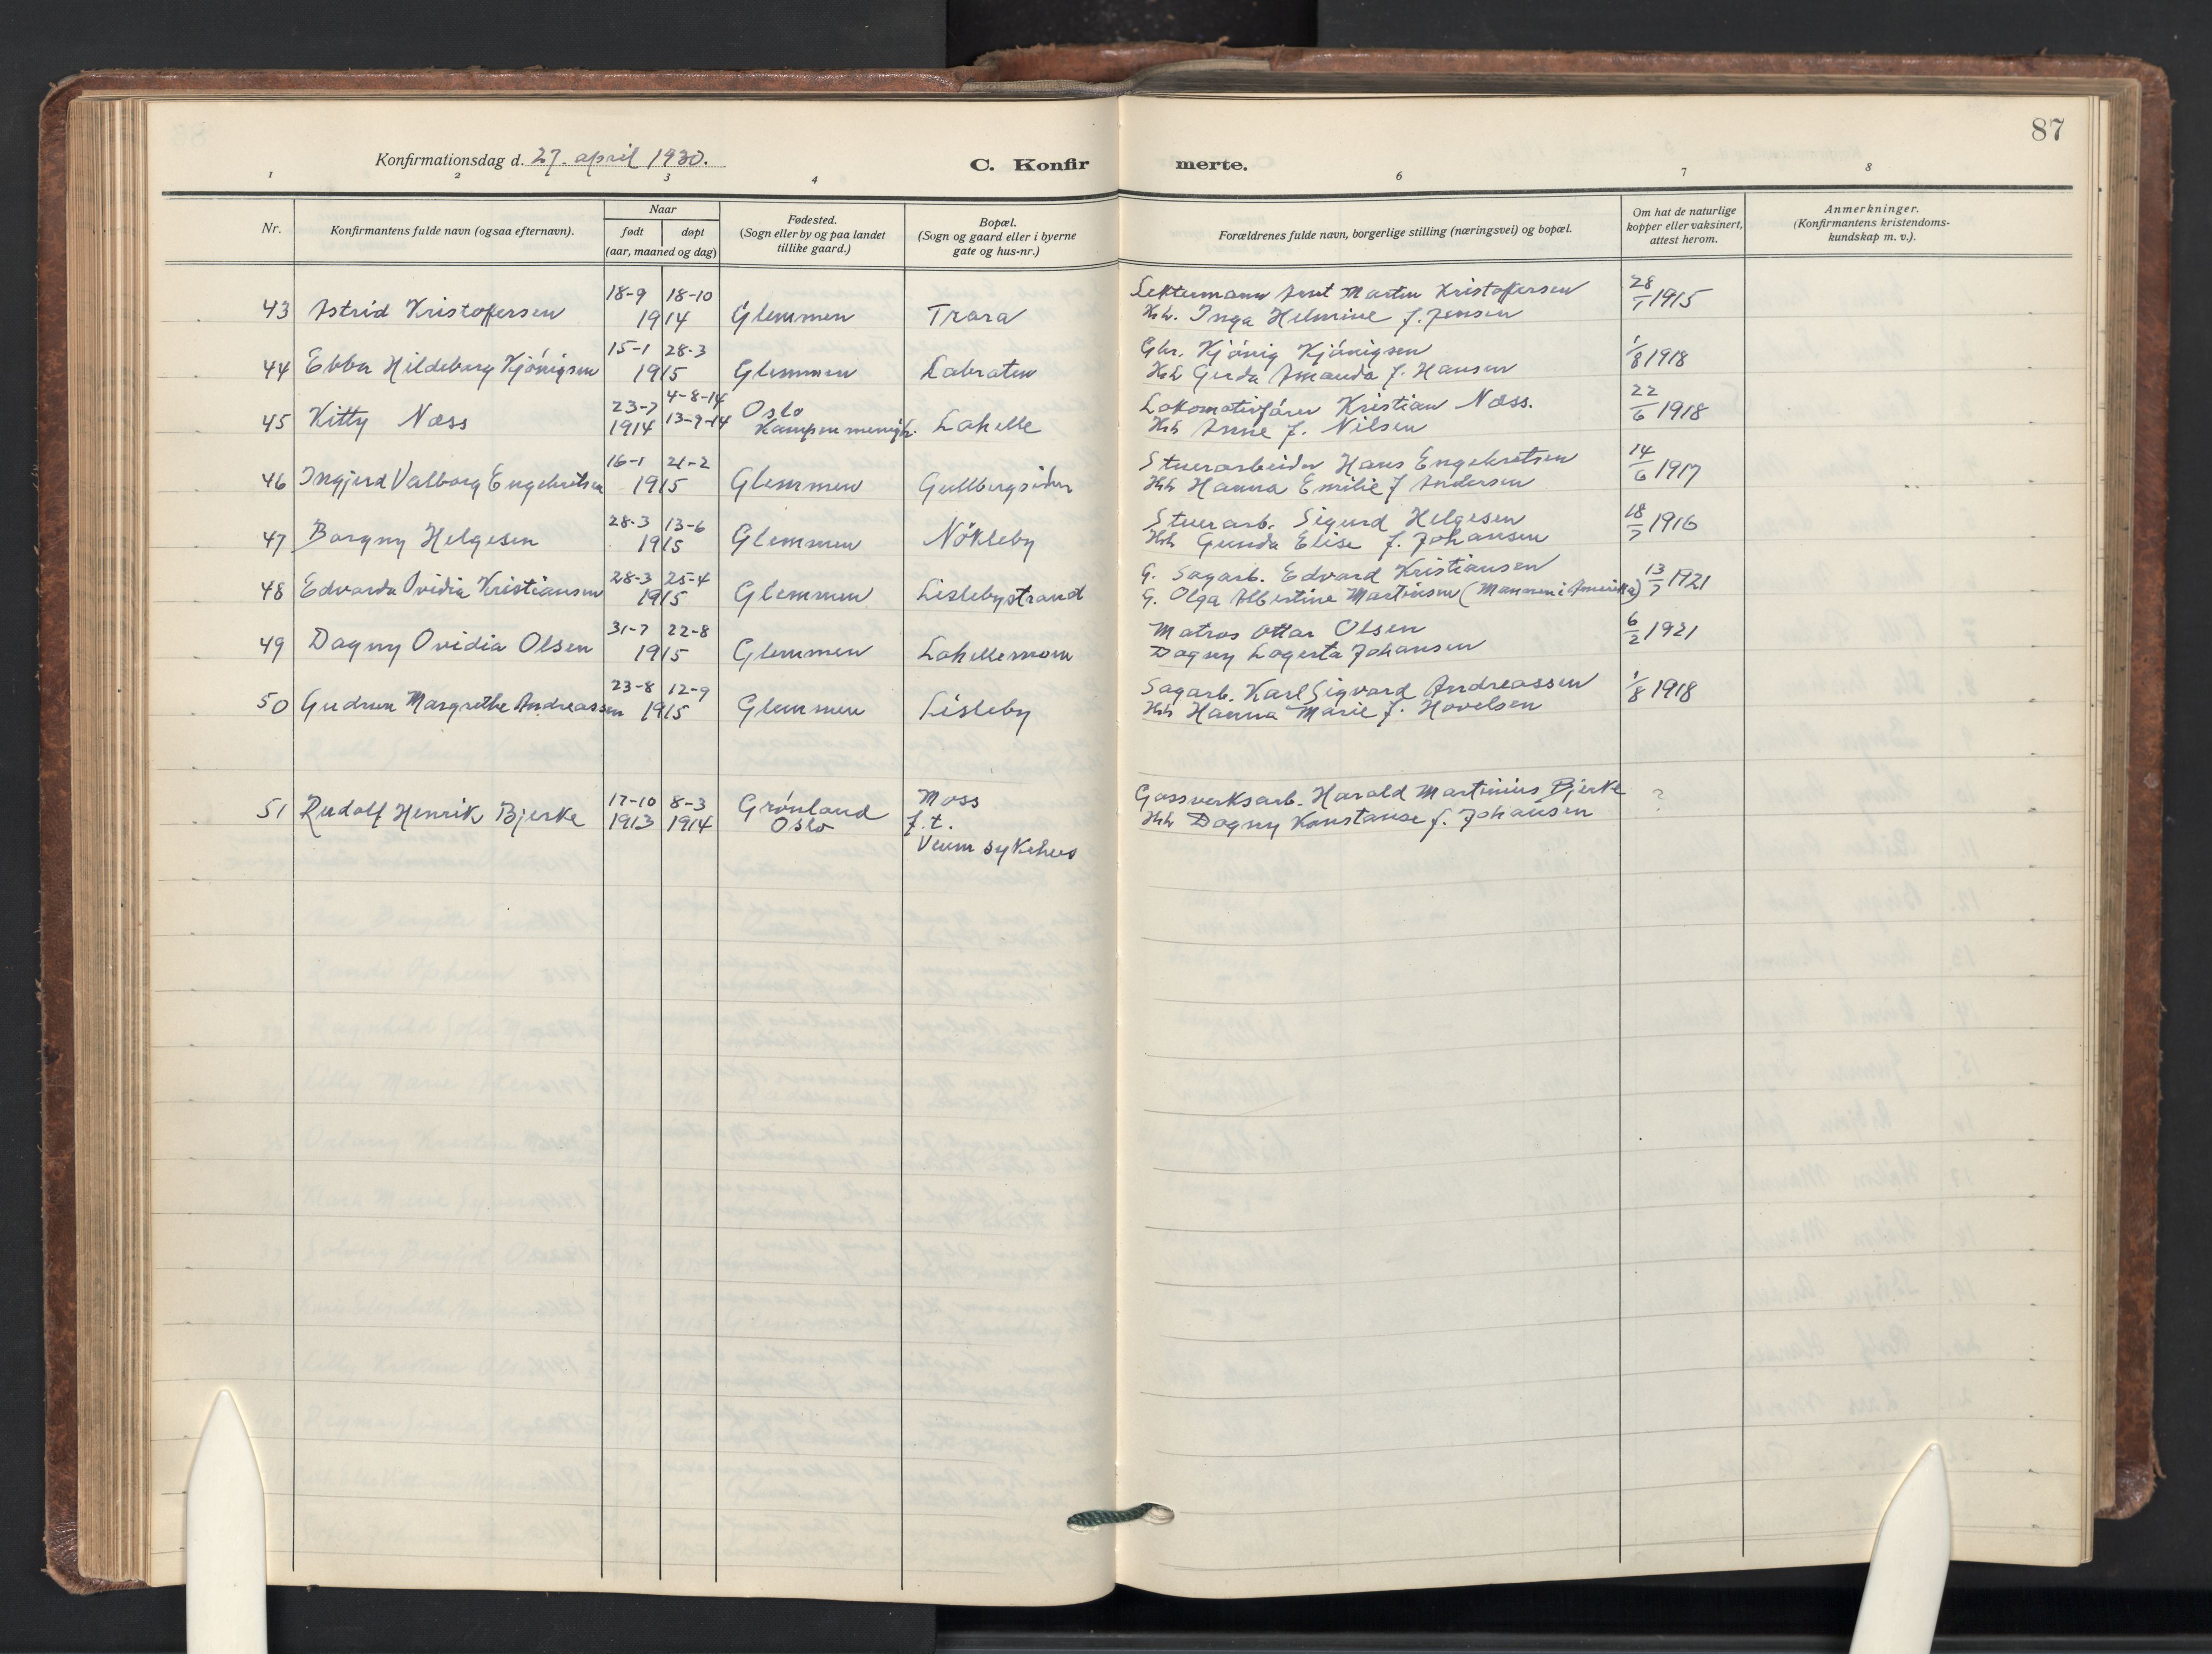 87
Konfirmationsdag d. 27. april 1930.
C. Konfir merte.
1 2 3 4 6 7 8
Nr.
Konfirmantens fulde navn (ogsaa efternavn).
Naar
født døpt
(aar, maaned og dag)
Fødested.
(Sogn eller by og paa landet
tillike gaard.)
Bopæl.
(Sogn og gaard eller i byerne
gate og hus-nr.)
Forældrenes fulde navn, borgerlige stilling (næringsvei) og bopæl.
Om hat de naturlige
kopper eller vaksinert,
attest herom.
Anmerkninger.
(Konfirmantens kristendoms-
kundskap m. v.).
18-9 18-10 Lektermann Arnt Martin Kristoffersen 28
43 Astrid Kristoffersen 1914 Glemmen Trara Hh. Inga Helmine f. Jensen /1 1915
15-1 28-3 Gbr. Kjönig Kjönigsen
44 Ebba Hildeborg Kjönigsen 1915 Glemmen Labraten Hh Gerda Amanda f. Hansen 1/8 1918
23-7 4-8-14 Oslo Lokomotivfører Kristian Næss. 22
45 Kitty Næss 1914 13-9-14 Kampen menigh. Lahelle Hh Anne f. Nilsen /6 1918
16-1 21-2 Stuerarbeider Hans Engebretsen 14
46 Ingjerd Valborg Engebretsen 1915 Glemmen Gullbergsiden Hh Hanna Emilie f Andersen /6 1917
28-3 13-6 Stuerarb. Sigurd Helgesen 18
47 Borgny Helgesen 1915 Glemmen Nökleby Hh Gunda Elise f. Johansen /7 1916
28-3 25-4 G. Sagarb. Edvard Kristiansen 13
48 Edvarda Ovidia Kristiansen 1915 Glemmen Lislebystrand G. Olga Albertine Martinsen (Mannen i Amerika) /7 1921
31-7 22-8 Matros Ottar Olsen 6
49 Dagny Ovidia Olsen 1915 Glemmen Lahellemoen Dagny Lagerta Johansen /2 1921
23-8 12-9 Sagarb. Karl Sigvard Andreassen
50 Gudrun Margrethe Andreassen 1915 Glemmen Lisleby Hh Hanna Marie f. Hovelsen 1/8 1918
17-10 8-3 Grönland Moss Gassverksarb. Harald Martinius Bjerke ?
51 Rudolf Henrik Bjerke 1913 1914 Oslo f.t. Hh Dagny Konstanse f. Johansen
Veum sykehus